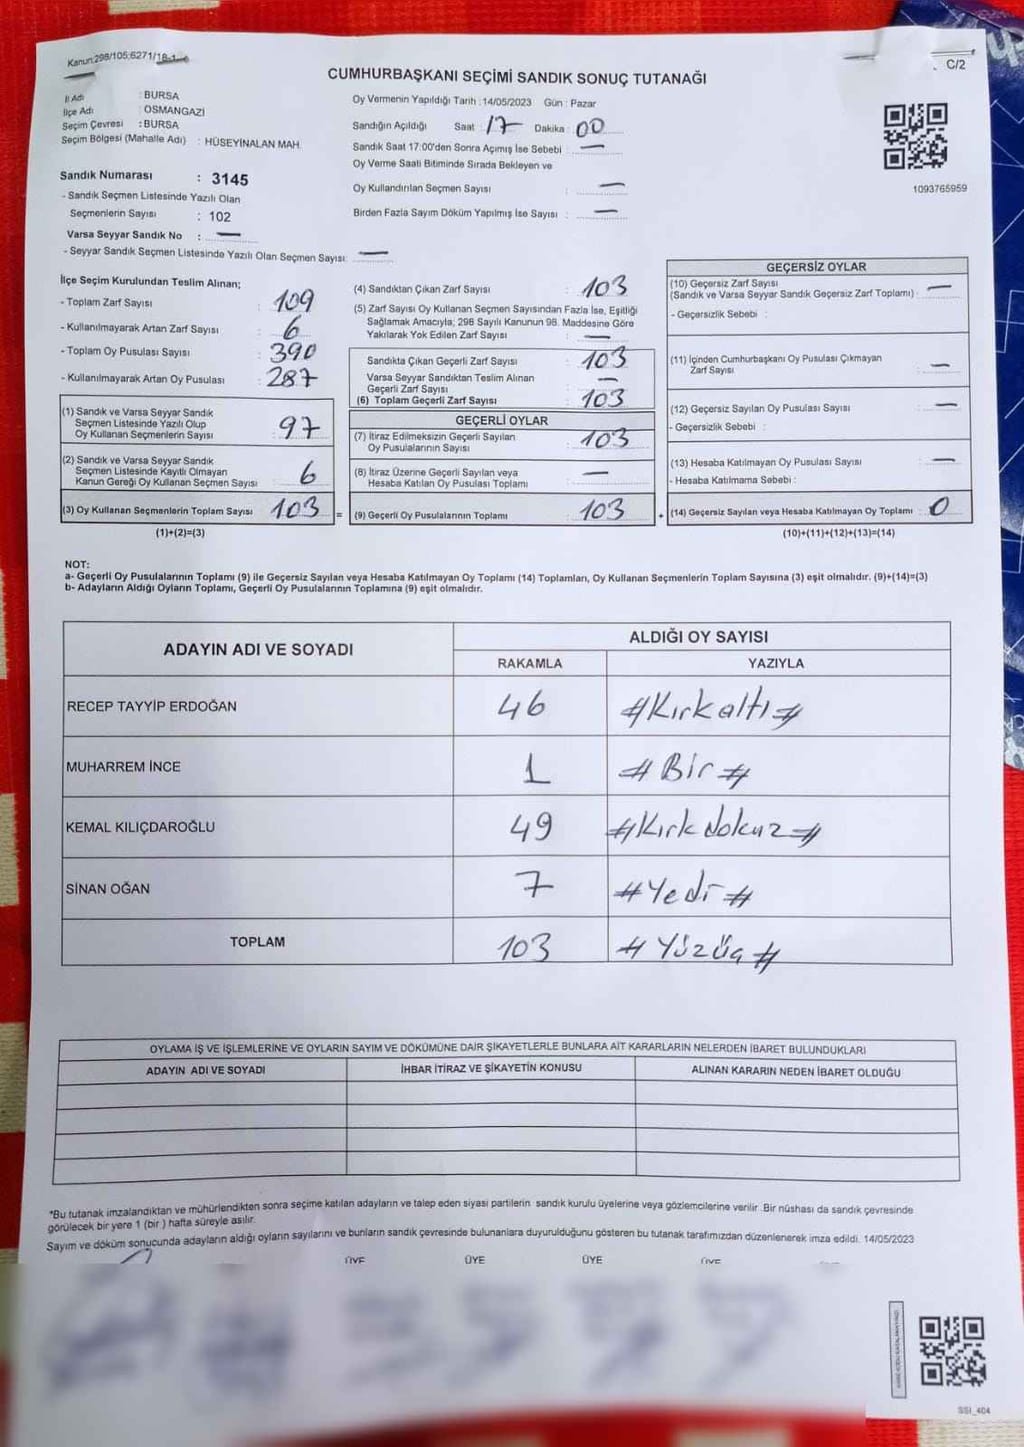 Kanun:298/105;6271/18-1
C/2
CUMHURBAŞKANI SEÇİMİ SANDIK SONUÇ TUTANAĞI
İl Adı : BURSA
İlçe Adı : OSMANGAZİ
Seçim Çevresi : BURSA
Seçim Bölgesi (Mahalle Adı) : HÜSEYİNALAN MAH.
Oy Vermenin Yapıldığı Tarih : 14/05/2023 Gün : Pazar
Sandığın Açıldığı Saat : 17 Dakika : 00
Sandık Saat 17:00'den Sonra Açımış İse Sebebi : —
Oy Verme Saati Bitiminde Sırada Bekleyen ve
Oy Kullandırılan Seçmen Sayısı : —
Birden Fazla Sayım Döküm Yapılmış İse Sayısı : —
1093765959
Sandık Numarası : 3145
- Sandık Seçmen Listesinde Yazılı Olan
Seçmenlerin Sayısı : 102
Varsa Seyyar Sandık No : —
- Seyyar Sandık Seçmen Listesinde Yazılı Olan Seçmen Sayısı: —
İlçe Seçim Kurulundan Teslim Alınan;
- Toplam Zarf Sayısı : 109
- Kullanılmayarak Artan Zarf Sayısı : 6
- Toplam Oy Pusulası Sayısı : 390
- Kullanılmayarak Artan Oy Pusulası : 287
(1) Sandık ve Varsa Seyyar Sandık
Seçmen Listesinde Yazılı Olup
Oy Kullanan Seçmenlerin Sayısı : 97
(2) Sandık ve Varsa Seyyar Sandık
Seçmen Listesinde Kayıtlı Olmayan
Kanun Gereği Oy Kullanan Seçmen Sayısı : 6
(3) Oy Kullanan Seçmenlerin Toplam Sayısı : 103 =
(1)+(2)=(3)
(4) Sandıktan Çıkan Zarf Sayısı : 103
(5) Zarf Sayısı Oy Kullanan Seçmen Sayısından Fazla İse, Eşitliği
Sağlamak Amacıyla; 298 Sayılı Kanunun 98. Maddesine Göre
Yakılarak Yok Edilen Zarf Sayısı : —
Sandıkta Çıkan Geçerli Zarf Sayısı : 103
Varsa Seyyar Sandıktan Teslim Alınan
Geçerli Zarf Sayısı : —
(6) Toplam Geçerli Zarf Sayısı : 103
GEÇERLİ OYLAR
(7) İtiraz Edilmeksizin Geçerli Sayılan
Oy Pusulalarının Sayısı : 103
(8) İtiraz Üzerine Geçerli Sayılan veya
Hesaba Katılan Oy Pusulası Toplamı : —
(9) Geçerli Oy Pusulalarının Toplamı : 103 +
GEÇERSİZ OYLAR
(10) Geçersiz Zarf Sayısı
(Sandık ve Varsa Seyyar Sandık Geçersiz Zarf Toplamı) : —
- Geçersizlik Sebebi :
(11) İçinden Cumhurbaşkanı Oy Pusulası Çıkmayan
Zarf Sayısı : —
(12) Geçersiz Sayılan Oy Pusulası Sayısı : —
- Geçersizlik Sebebi :
(13) Hesaba Katılmayan Oy Pusulası Sayısı : —
- Hesaba Katılmama Sebebi :
(14) Geçersiz Sayılan veya Hesaba Katılmayan Oy Toplamı : 0
(10)+(11)+(12)+(13)=(14)
NOT:
a- Geçerli Oy Pusulalarının Toplamı (9) ile Geçersiz Sayılan veya Hesaba Katılmayan Oy Toplamı (14) Toplamları, Oy Kullanan Seçmenlerin Toplam Sayısına (3) eşit olmalıdır. (9)+(14)=(3)
b- Adayların Aldığı Oyların Toplamı, Geçerli Oy Pusulalarının Toplamına (9) eşit olmalıdır.
ADAYIN ADI VE SOYADI
ALDIĞI OY SAYISI
RAKAMLA YAZIYLA
RECEP TAYYİP ERDOĞAN 46 #Kırkaltı#
MUHARREM İNCE 1 #Bir#
KEMAL KILIÇDAROĞLU 49 #Kırkdokuz#
SİNAN OĞAN 7 #Yedi#
TOPLAM 103 #Yüzüç#
OYLAMA İŞ VE İŞLEMLERİNE VE OYLARIN SAYIM VE DÖKÜMÜNE DAİR ŞİKAYETLERLE BUNLARA AİT KARARLARIN NELERDEN İBARET BULUNDUKLARI
ADAYIN ADI VE SOYADI İHBAR İTİRAZ VE ŞİKAYETİN KONUSU ALINAN KARARIN NEDEN İBARET OLDUĞU
*Bu tutanak imzalandıktan ve mühürlendikten sonra seçime katılan adayların ve talep eden siyasi partilerin sandık kurulu üyelerine veya gözlemcilerine verilir. Bir nüshası da sandık çevresinde
görülecek bir yere 1 (bir ) hafta süreyle asılır.
Sayım ve döküm sonucunda adayların aldığı oyların sayılarını ve bunların sandık çevresinde bulunanlara duyurulduğunu gösteren bu tutanak tarafımızdan düzenlenerek imza edildi. 14/05/2023
ÜYE ÜYE ÜYE ÜYE
SSI_404